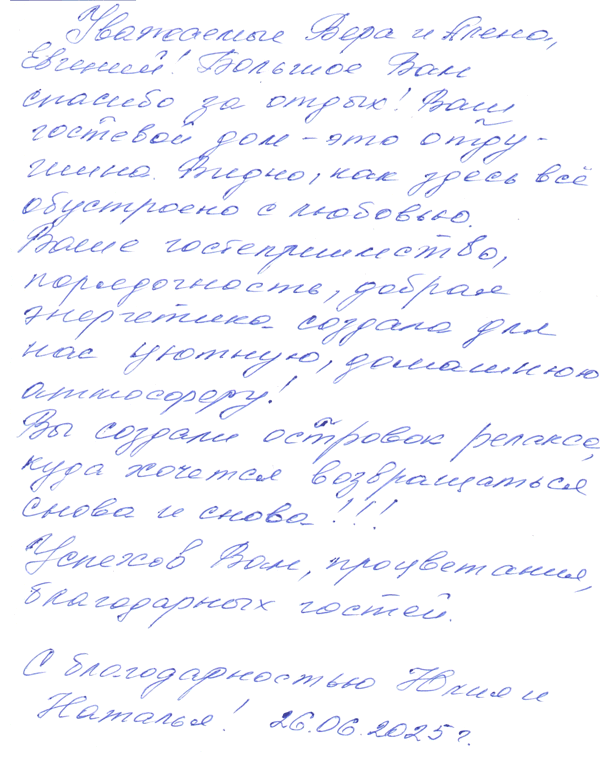 Уважаемые Вера и Алена,
Евгений! Большое Вам
спасибо за отдых! Ваш
гостевой дом - это отду-
шина. Видно, как здесь всё
обустроено с любовью.
Ваше гостеприимство,
порядочность, добрая
энергетика создала для
нас уютную, домашнюю
атмосферу!
Вы создали островок релакса,
куда хочется возвращаться
снова и снова!!!
Успехов Вам, процветания,
благодарных гостей.
С благодарностью Юлия и
Наталья! 26.06.2025г.